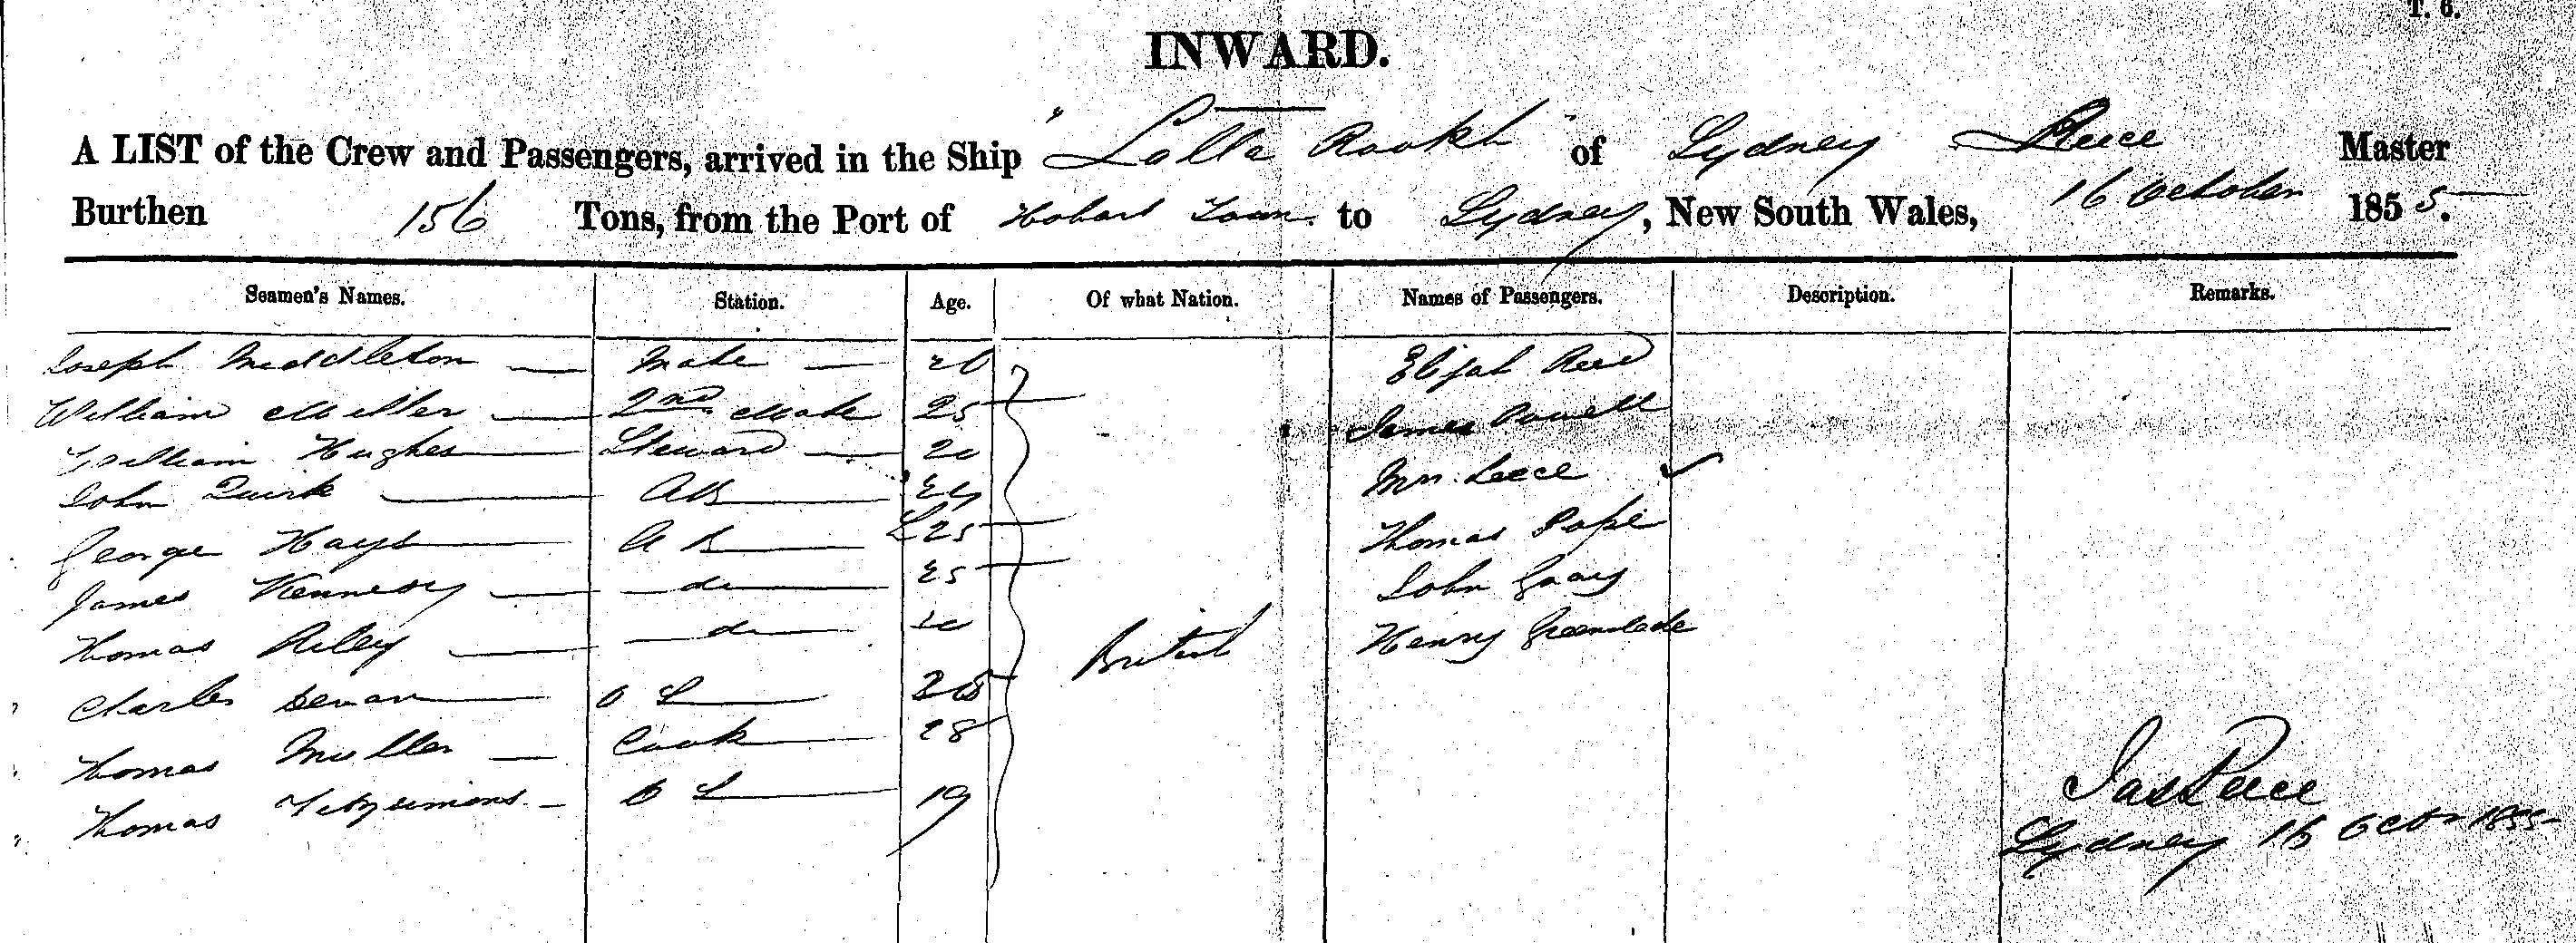 T. 6.
INWARD.
A LIST of the Crew and Passengers, arrived in the Ship "Lalla Rookh" of Sydney Master
Burthen 156 Tons, from the Port of Hobart Town to Sydney, New South Wales, 16 October 1855.
Seamen's Names. Station. Age. Of what Nation. Names of Passengers. Description. Remarks.
Joseph Middleton Mate Elijah Reed
William Miller 2nd Mate 25 James Powell
William Hughes Steward 20 Mrs
John Quirk AB
George Hays AB 25 Thomas Pope
James Kennedy do 25 John Gray
Thomas Riley do British Henry Greenslade
Charles O S
Thomas Cook 28
Thomas Fitzsimions O S 19
Jas
Sydney 16 Octr 1855